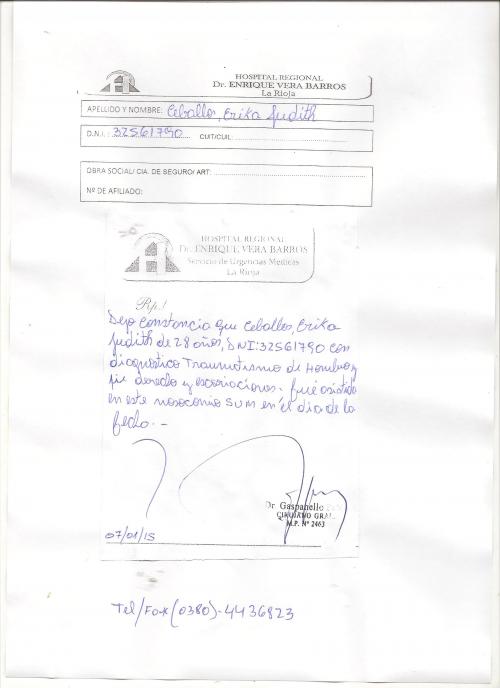 HOSPITAL REGIONAL
Dr. ENRIQUE VERA BARROS
La Rioja
APELLIDO Y NOMBRE: Ceballos, Erika Judith
D.N.I.: 32561790 CUIT/CUIL:
OBRA SOCIAL/ CIA. DE SEGURO/ ART:
Nº DE AFILIADO:
HOSPITAL REGIONAL
Dr. ENRIQUE VERA BARROS
Servicio de Urgencias Médicas
La Rioja
Rp./
Dejo constancia que Ceballos, Erika
Judith de 28 años, DNI: 32561790 con
diagnóstico Traumatismo de Hombro y
pie derecho y escoriaciones. fué asistida
en este nosocomio SUM en el dia de la
fecha.-
Dr. Gaspanello
CIRUJANO GRAL.
M.P. Nº 2463
07/01/15
Tel/Fax (0380)-4436823